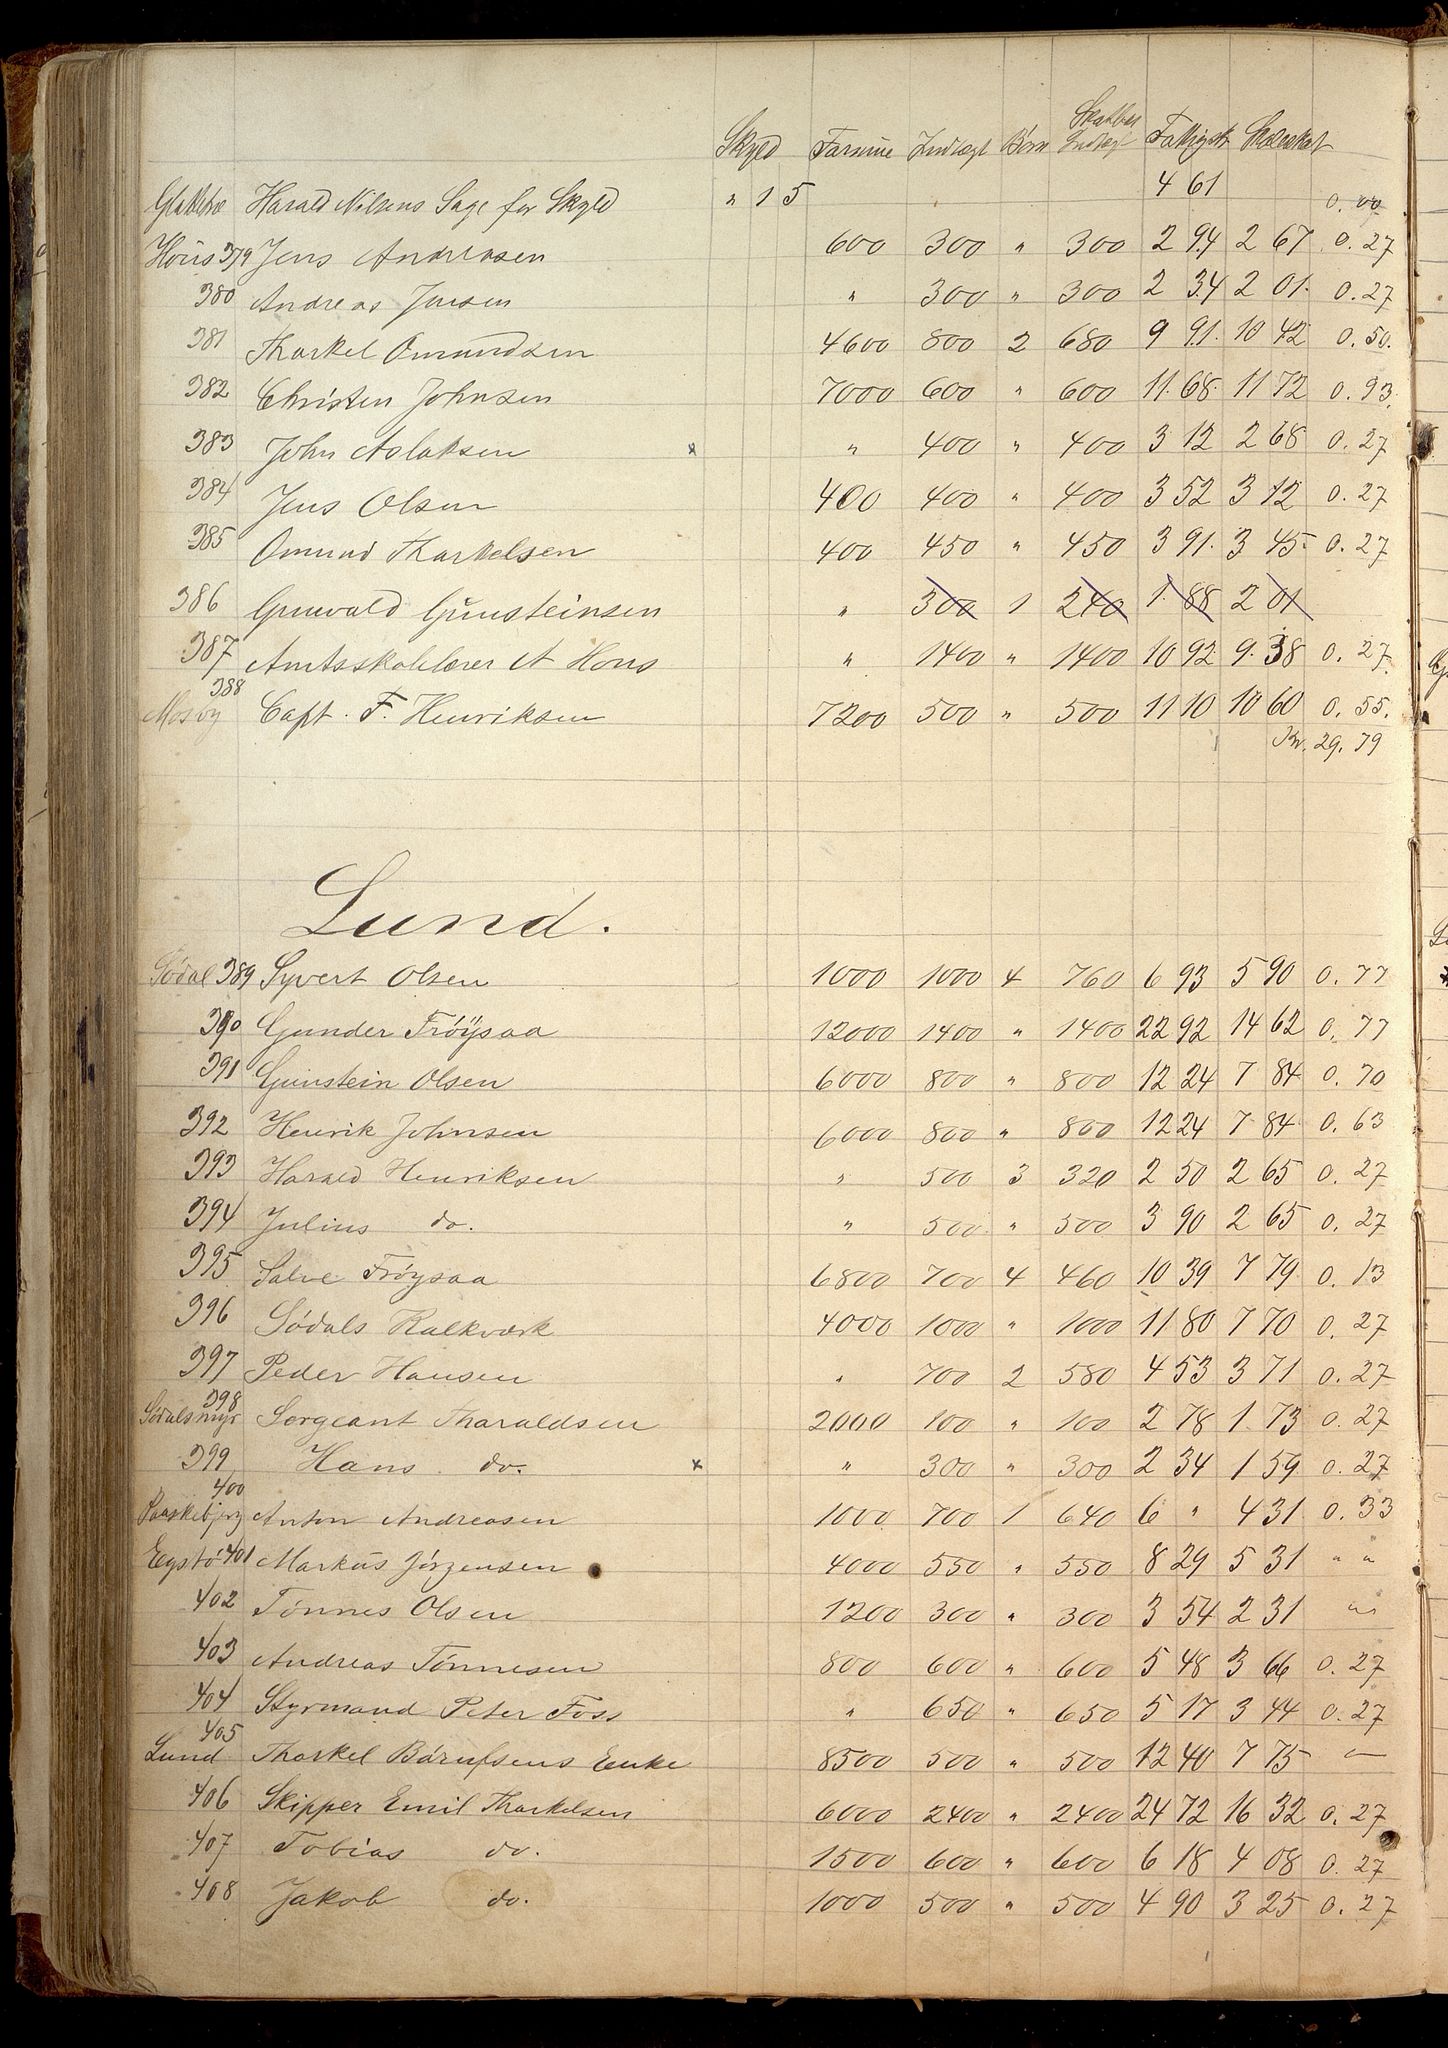 Skyld Formue Indtægt Børn Skatbar Indtægt Fattigsk Skoleskat
Glattetræ Harald Nilsens Sage for Skyld " 1 5 4 61 0.00
Høus 379 Jens Andreasen 600 300 " 300 2 94 2 67 0.27
380 Andreas Jensen " 300 " 300 2 34 2 01. 0.27
381 Thorkel Omundsen 4600 800 2 680 9 91. 10 42 0.50.
382 Christen Johnsen 7000 600 " 600 11.68. 11 72 0.93.
383 John Aslaksen x " 400 " 400 3 12 2 68 0.27
384 Jens Olsen 400 400 " 400 3 52 3 12 0.27
385 Omund Thorkelsen 400 450 " 450 3 91. 3 45. 0.27
386 Grunvald Gŭnsteinsen " 300 1 240 1.88 2 01
387 Amtsskolelærer A Hous " 1400 " 1400 10 92. 9. 38 0.27
388
Mosby Capt. F. Henriksen 7200 500 " 500 11 10 10 60 0.55.
Kr. 29.79
Lund.
Sødal 389 Syvert Olsen 1000 1000 4 760 6 93 5 90 0.77
390 Gunder Frøÿsaa 12000 1400 " 1400 22 92 14 62 0.77
391 Gunstein Olsen 6000 800 " 800 12 24 7 84 0.70
392 Henrik Johnsen 6000 800 " 800 12 24 7 84 0.63
393 Harald Henriksen " 500 3 320 2 50 2 65 0.27
394 Julius do. " 500 " 500 3 90 2 65 0.27
395 Salve Frøysaa 6800 700 4 460 10 39 7 79 0.13
396 Sødals Kalkværk 4000 1000 " 1000 11 80 7 70 0.27
397 Peder Hansen " 700 2 580 4 53 3 71 0.27
398
Sødalsmyr Sergeant Tharaldsen 2000 100 " 100 2 78 1 73 0.27
399 Hans do. x " 300 " 300 2 34 1 59 0.27
400
Paaskebjerg Anton Andreasen 1000 700 1 640 6 " 4 31 0.33
Egstø 401 Markŭs Jørgensen 4000 550 " 550 8 29 5 31 " "
402 Tønnes Olsen 1200 300 " 300 3 54 2 31 "
403 Andreas Tønnesen 800 600 " 600 5 48 3 66 0.27
404 Styrmand Peter Foss " 650 " 650 5 17 3 44 0.27
405
Lund Thorkel Børufsens Enke 8500 500 " 500 12 40 7 75 —
406 Skipper Emil Thorkelsen 6000 2400 " 2400 24 72 16 32 0.27
407 Tobias do. 1500 600 " 600 6 18 4 08 0.27
408 Jakob do. 1000 500 " 500 4 90 3 25 0.27